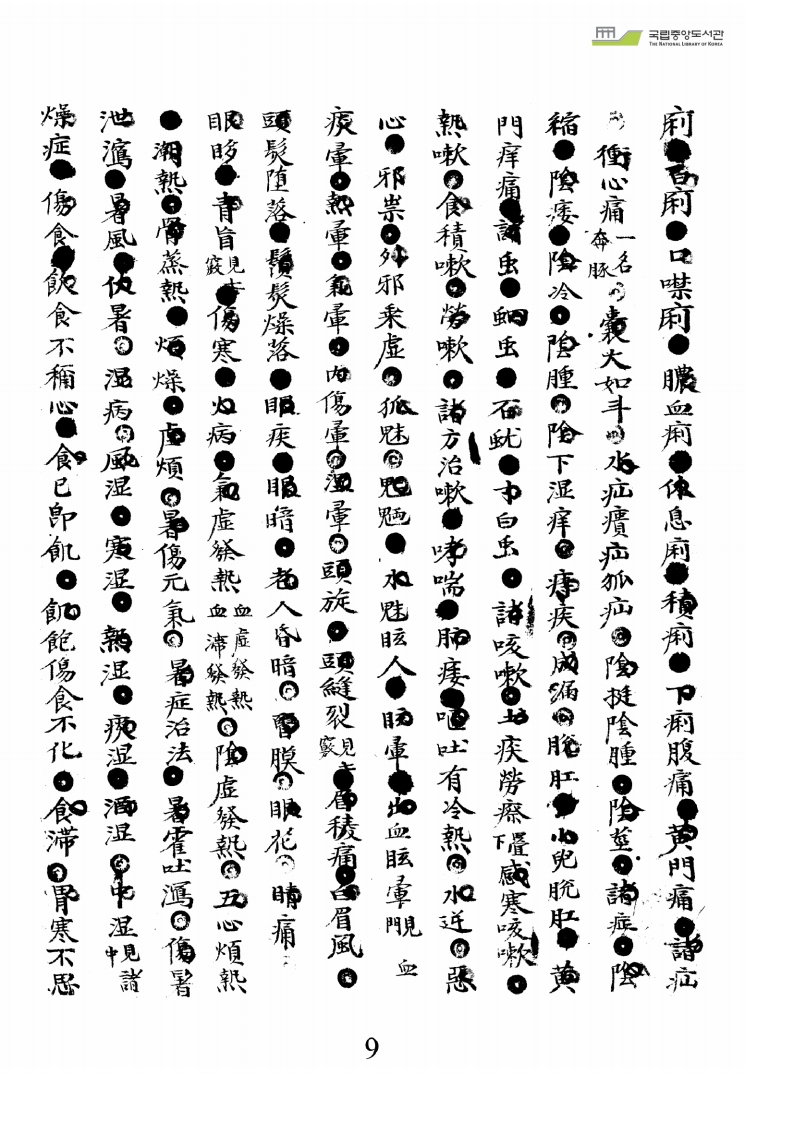 국립중앙도서관
THE NATIONAL LIBRARY OF KOREA
痢●百痢●口噤痢●膿血痢●休息痢●積痢●下痢腹痛●黃門痛●諸疝
●衝心痛一名奔豚●囊大如斗●水疝㿉疝狐疝●陰挺陰腫●陰莖●諸症●陰
縮●陰痿●陰冷●陰腫●陰下湿痒●痔疾●成漏●脫肛●小兒脫肛●黃
門痒痛●諸虫●蛔虫●石蚘●寸白虫●諸咳嗽●土疾勞瘵下疊感寒咳嗽●
熱嗽●食積嗽●勞嗽●諸方治嗽●哮喘●肺痿●嘔吐有冷熱●水逆●惡
心●邪祟●外邪乘虛●狐魅●魍魎●水魅眩人●眩暈●出血眩暈見血門
痰暈●熱暈●氣暈●內傷暈●湿暈●頭旋●頭縫裂見竅●眉稜痛●白眉風●
頭髮堕落●鬚髮燥落●眼疾●眼暗●老人昏暗●瞖膜●眼花●睛痛
眼眵●青盲見竅●傷寒●火病●氣虛發熱血虛發熱血滯發熱●陰虛發熱●五心煩熱
●潮熱●骨蒸熱●煩燥●虛煩●暑傷元氣●暑症治法●暑霍吐瀉●傷暑
泄瀉●暑風●伏暑●湿病●風湿●寒湿●熱湿●痰湿●酒湿●中湿見諸中
燥症●傷食●飮食不稱心●食已卽飢●飢飽傷食不化●食滯●胃寒不思
9